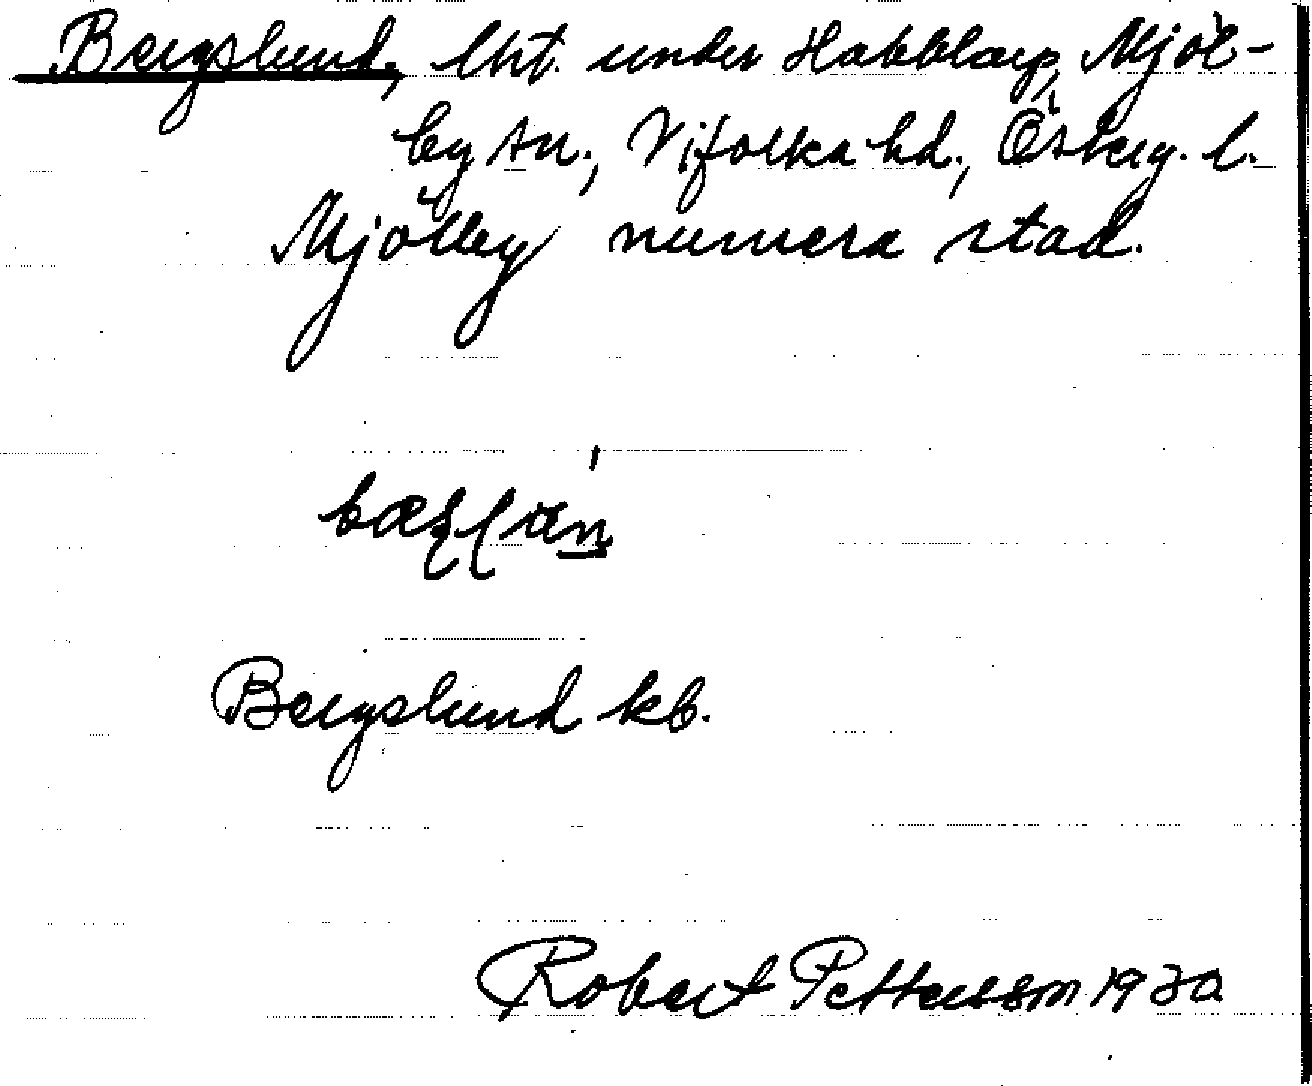 Bergslund, lht. under Habblarp, Mjöl-
by sn., Vifolka hd., Österg. l.
Mjölby numera stad.
Bergslund kb.
Robert Pettersson 1930